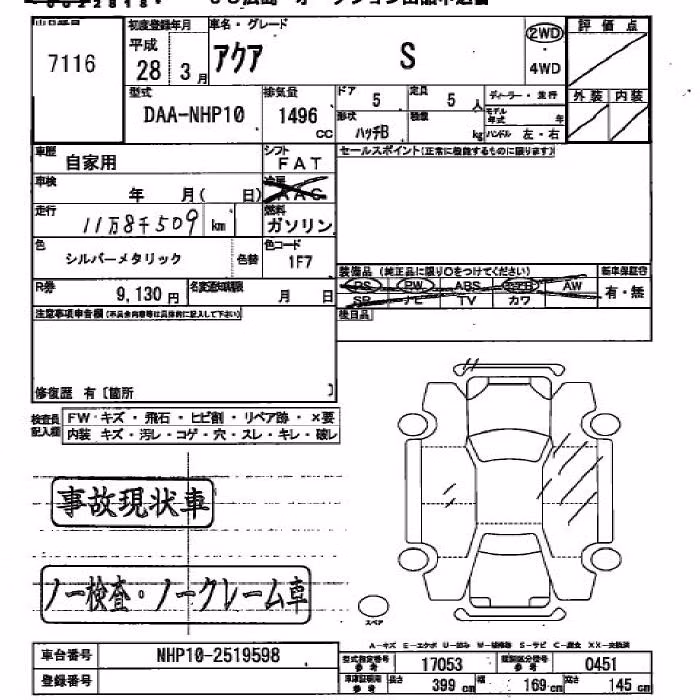 7116
初度登録年月
平成
28 3月
車名・グレード
アクア S
2WD
4WD
評価点
外装 内装
型式
DAA-NHP10
排気量
1496 cc
ドア 5
定員 5 人
形状 ハッチB
積載 kg
ディーラー・並行
モデル年式 年
ハンドル 左・右
車歴 自家用
シフト FAT
セールスポイント(正常に機能するものに限ります)
車検 年 月( 日)
冷房 AAC
走行 11万8千509 km
燃料 ガソリン
色 シルバーメタリック 色替
色コード 1F7
装備品(純正品に限り○をつけてください) 新車保証書
PS PW ABS AW
SR ナビ TV カワ
有・無
R券 9,130円
名変通知期限 月 日
後日品
注意事項申告欄(不具合内容等は具体的に記入して下さい)
修復歴 有〔箇所 〕
検査員記入欄
FW キズ・飛石・ヒビ割・リペア跡・×要
内装 キズ・汚レ・コゲ・穴・スレ・キレ・破レ
事故現状車
ノー検査・ノークレーム車
スペア
A-キズ E-エクボ U-凹み W-補修跡 S-サビ C-腐食 XX-交換済
車台番号 NHP10-2519598
登録番号
型式指定番号 参考 17053
類別区分番号 参考 0451
車庫証明用 参考 長さ 399 cm 幅 169 cm 高さ 145 cm